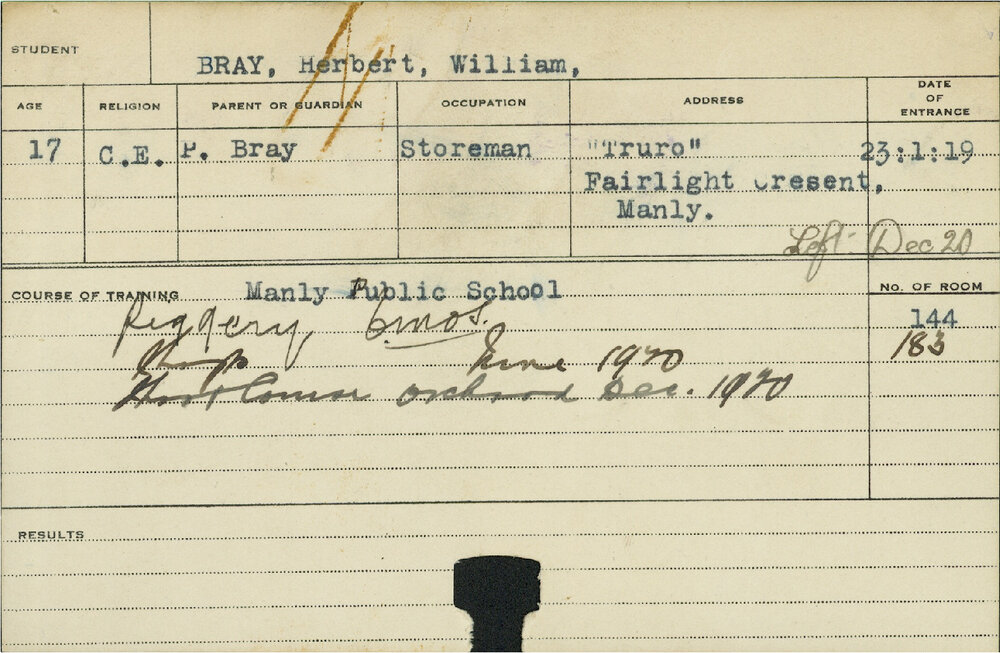 STUDENT
BRAY, Herbert, William,
AGE RELIGION PARENT OR GUARDIAN OCCUPATION ADDRESS DATE OF ENTRANCE
17 C.E. P. Bray Storeman "Truro" 23:1:19
Fairlight Cresent,
Manly.
Left - Dec 20
COURSE OF TRAINING Manly Public School NO. OF ROOM
Piggery, 6mos. 144
June 1920 183
Orchard Dec. 1920
RESULTS